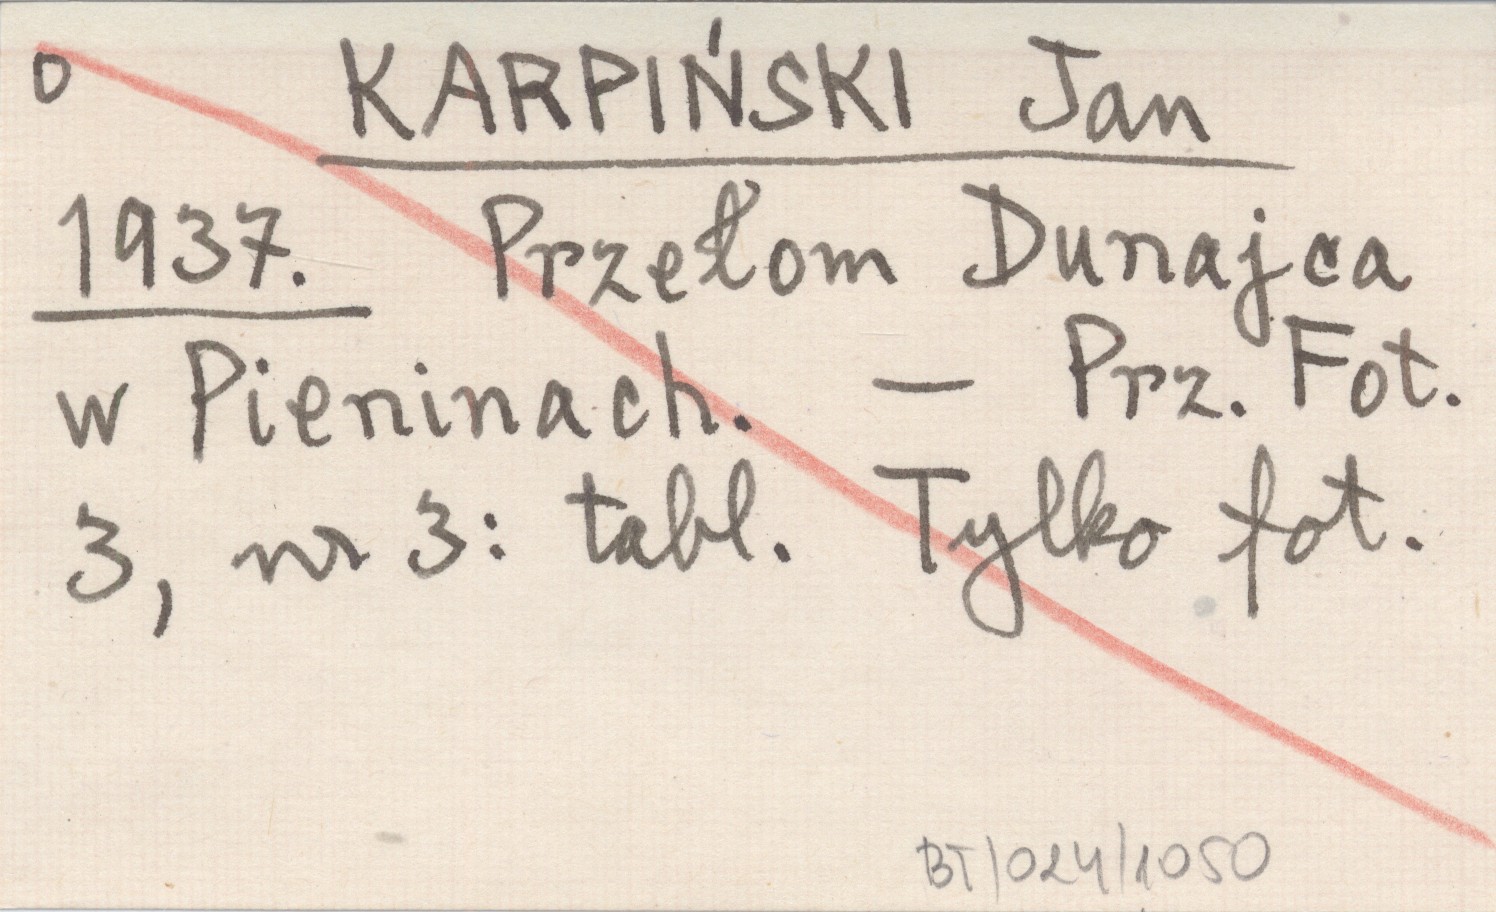 0 KARPIŃSKI Jan
1937. Przełom Dunajca
w Pieninach. — Prz. Fot.
3, nr 3: tabl. Tylko fot.
BT/024/1050